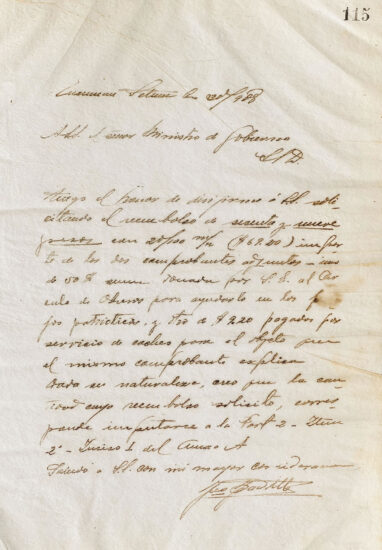 115
Tucuman Setiembre 20/98
A S.S. el Señor Ministro de Gobierno
S/D.
Tengo el honor de dirijirme á S.S. soli-
citando el reembolso de sesenta y nueve
pesos con 20/100 m/n ($69.20) impor
te de los dos comprobantes adjuntos: uno
de 50 $ suma donada por S.E. al Cír-
culo de Obreros para ayudarlo en los
jos patrióticos, y otro de $ 19.20 pagados por
servicio de coches para el objeto que
el mismo comprobante esplica
Dada su naturaleza, creo que la can-
tidad cuyo reembolso solicito, corres
ponde imputarse a la Part 2 - Item
2 - Inciso 1 del Anexo A
Saludo a S.S. con mi mayor consideracion